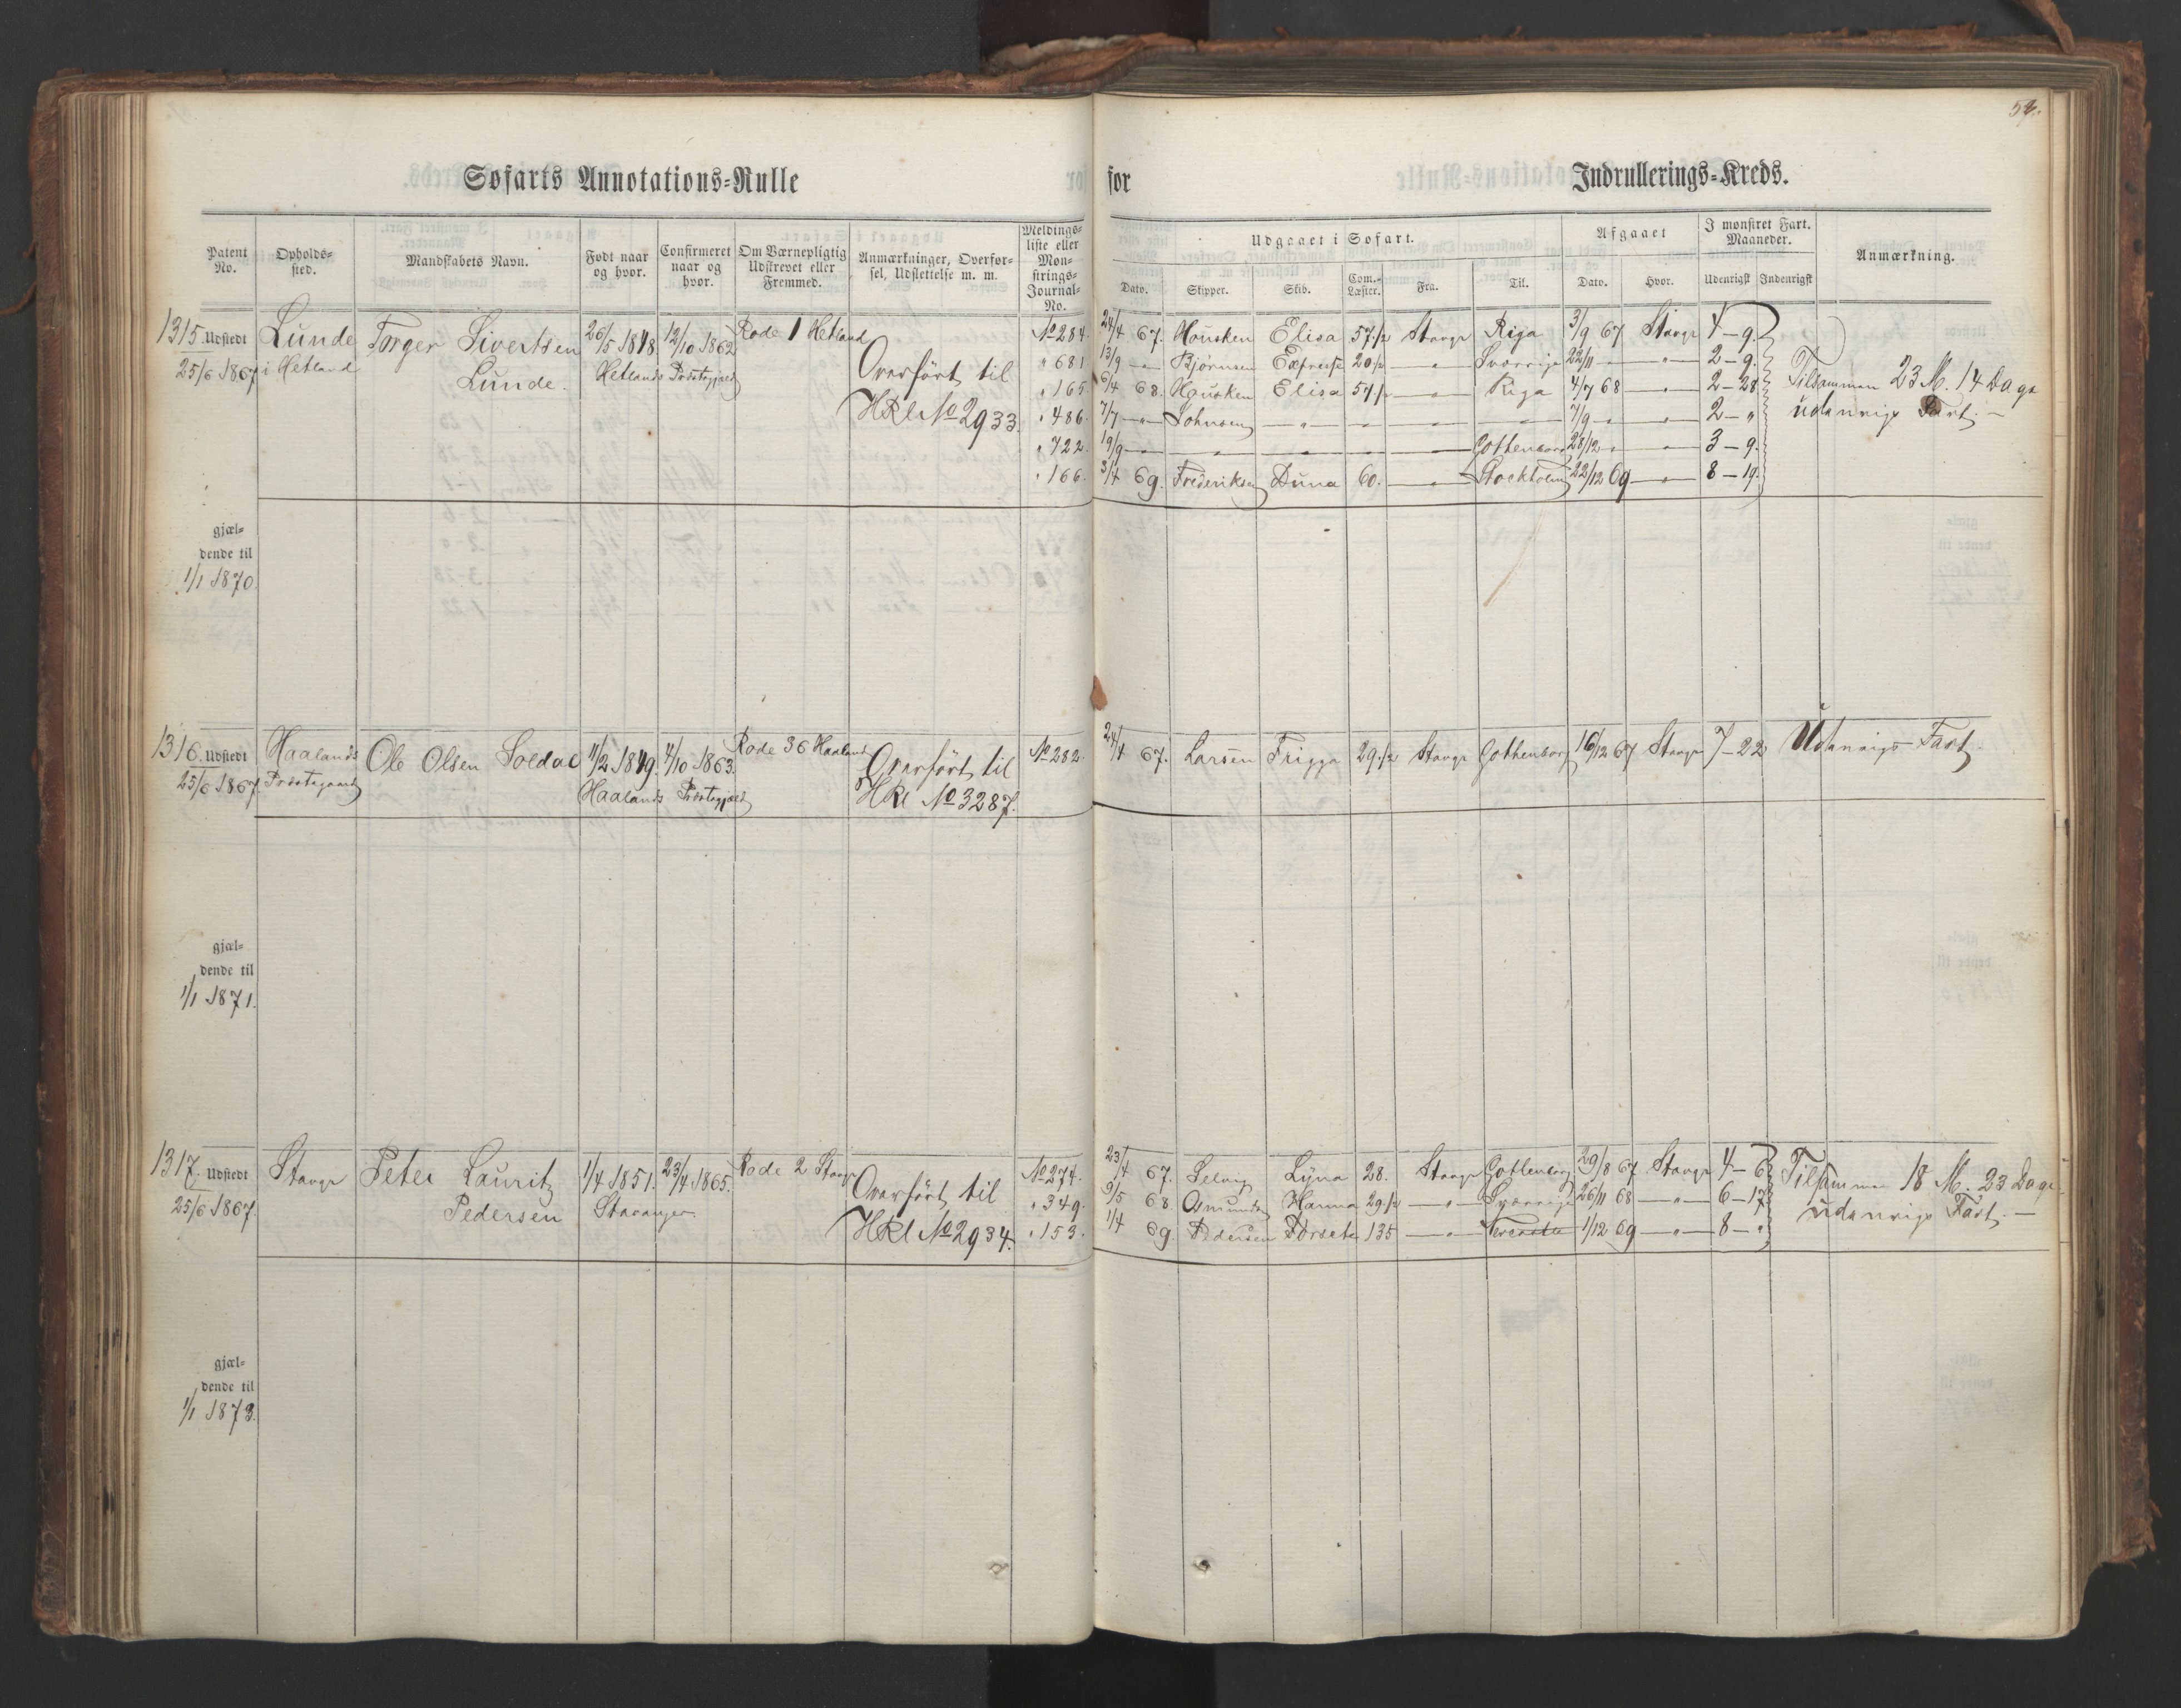 57.
Søfarts Annotations-Rulle for Indrullerings-Kreds.
Patent No. Opholdssted. Mandskabets Navn. Født naar og hvor. Confirmeret naar og hvor. Om Værnepligtig Udskrevet eller Fremmed. Anmærkninger, Overførsel, Udslettelse m. m. Meldingsliste eller Mønstrings-Journal-No.
Udgaaet i Søfart. Afgaaet I mønstret Fart. Maaneder. Anmærkning.
Dato. Skipper. Skib. Com.-Læster. Fra. Til. Dato. Hvor. Udenrigsk Indenrigsk
1315. Udstedt Lunde Torger Sivertsen 26/5 1848. 12/10 1862 Rode 1 Hetland No 284. 24/4 67. Hausken Elisa 57 1/2 Stavgr Riga 3/9 67 Stavgr 4-9.
25/6 1867 i Hetland Lunde. Hetlands Præstegjæld Overført til " 681 13/9 — Bjørnsen Expresse 20 1/2 — " — Sverrige 22/11 — " — 2-9. Tilsammen 23 M. 14 Dage
HRl No 2933. " 165. 6/4 68. Hausken Elisa 57 1/2 — " — Riga 4/7 68 — " — 2-28 udenrigs Fart. —
" 486. 7/7 — " — Johnsen — " — — — 7/9 — " — 2- "
" 722. 19/9 — " — — Gothenborg 28/12 " — " — 3-9.
" 166. 3/4 69. Frederiksen Duna 60. — " — Stockholm 22/12 69 — " — 8-19.
gjæl-
dende til
1/1 1870.
1316. Udstedt Haalands Ole Olsen Soldal 11/2 1849. 4/10 1863. Rode 36 Haaland Overført til No 282. 24/4 67. Larsen Frigga 29 1/2 Stavgr Gothenborg 16/12 67 Stavgr 7-22 Udenrigs Fart.
25/6 1867. Præstegaard Haalands Præstegjæld HRl No 3287.
gjæl-
dende til
1/1 1871.
1317. Udstedt Stavgr Peter Lauritz 1/4 1851. 23/4 1865. Rode 2 Stavgr No 274. 23/4 67. Selvig Lyna 28. Stavgr Gothenborg 29/8 67 Stavgr 4-6 Tilsammen 18 M. 23 Dage
25/6 1867. Pedersen Stavanger. Overført til " 349. 9/5 68. Asmundsen Hanna 29 1/2 — " — Sverrige 26/11 68 — " — 6-17 udenrigs Fart. —
HRl No 2934. " 153. 1/4 69. Pedersen Forsete 135 — " — Newcastle 1/12 69 — " — 8- "
gjæl-
dende til
1/1 1873.